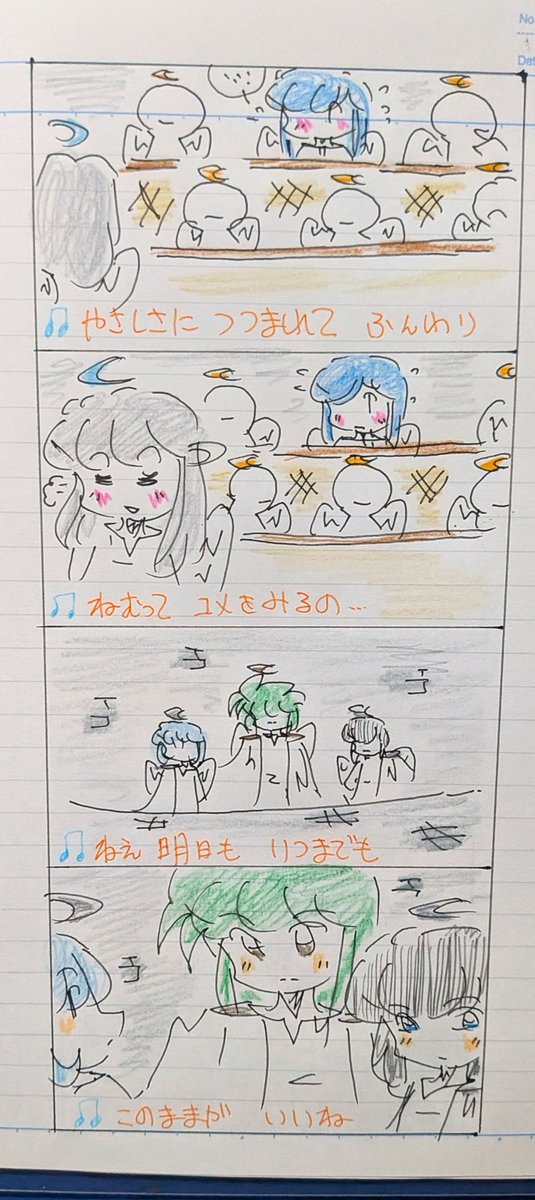 No.
Dat
♫ やさしさに つつまれて ふんわり
♫ ねむって ユメをみるの…
♫ ねえ 明日も いつまでも
♫ このままが いいね